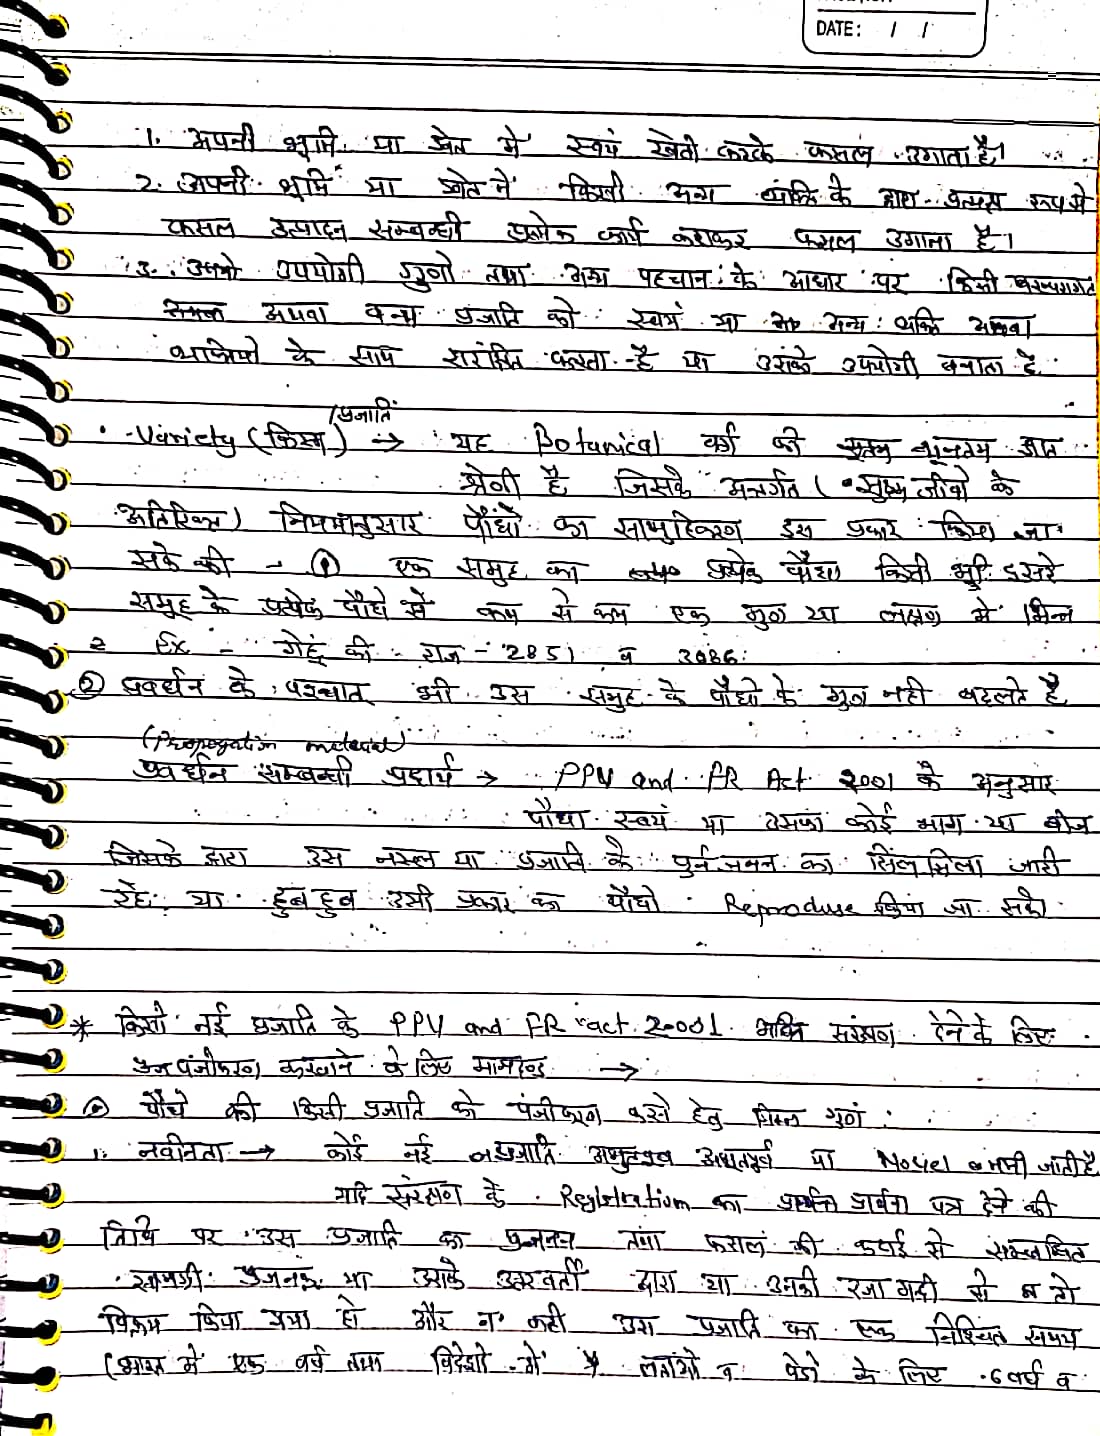 DATE: / /
1. अपनी भूमि या खेत में स्वयं खेती करके फसल उगाता है।
2. अपनी भूमि या खेत में किसी अन्य व्यक्ति के द्वारा प्रत्यक्ष रूप से
फसल उत्पादन सम्बन्धी प्रत्येक कार्य कराकर फसल उगाता है।
3. उपयोगी गुणों तथा पहचान के आधार पर किसी परम्परागत
अथवा वन्य प्रजाति को स्वयं या अन्य व्यक्ति अथवा
व्यक्तियों के साथ संरक्षित करता है या उसके उपयोगी बनाता है
/प्रजाति
Variety (किस्म) → यह Botanical वर्ग की न्यूनतम ज्ञात
श्रेणी है जिसके अन्तर्गत ( सूक्ष्म जीवो के
अतिरिक्त) नियमानुसार पौधों का सामुहिकरण इस प्रकार किया जा
सके की - ① एक समुह का प्रत्येक पौधा किसी भी दूसरे
समूह के प्रत्येक पौधे से कम से कम एक गुण या लक्षण में भिन्न
Ex - गेहूं की राज - व
② प्रवर्धन के पश्चात् भी उस समुह के पौधो के गुण नही बदलते है
(Propogation material)
प्रवर्धन सम्बन्धी पदार्थ → PPV and FR Act 2001 के अनुसार
पौधा स्वयं या उसका कोई भाग या बीज
जिसके द्वारा उस नस्ल या प्रजाति के पुर्नजनन का सिलसिला जारी
रहे या हुबहुब उसी प्रकार का पौधो Reproduse किया जा सके
* किसी नई प्रजाति के PPV and FR act 2001 संरक्षण देने के लिए
पंजीकरण करवाने के लिए मापदण्ड →
पौधे की किसी प्रजाति को पंजीकरण करने हेतु निम्न गुण
1. नवीनता → कोई नई प्रजाति या Novel मानी जाती है
यदि संरक्षण के Registration का प्रार्थना पत्र देने की
तिथि पर उस प्रजाति का प्रजनन तथा फसल की कटाई से सम्बन्धित
सामग्री प्रजनक या उसके उत्तरवर्ती द्वारा या उनकी रजामंदी से न तो
विक्रय किया गया हो और न कही उस प्रजाति का एक निश्चित समय
(भारत में एक वर्ष तथा विदेशो में लताओं व पेडो के लिए 6 वर्ष व